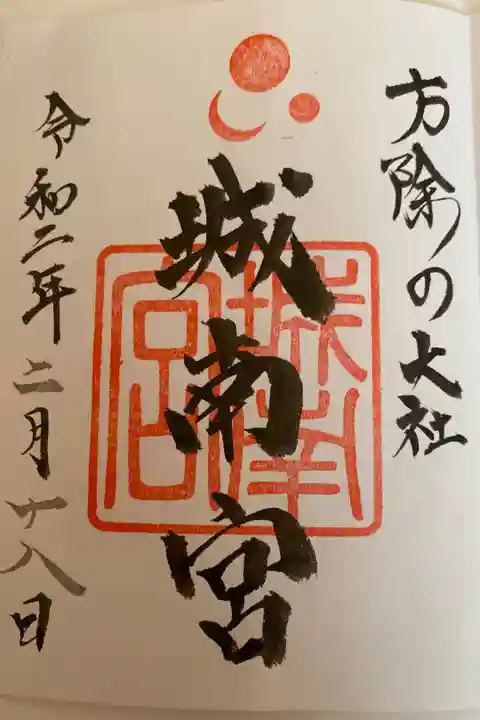 方除の大社
城南宮
城南宮
令和二年二月十八日